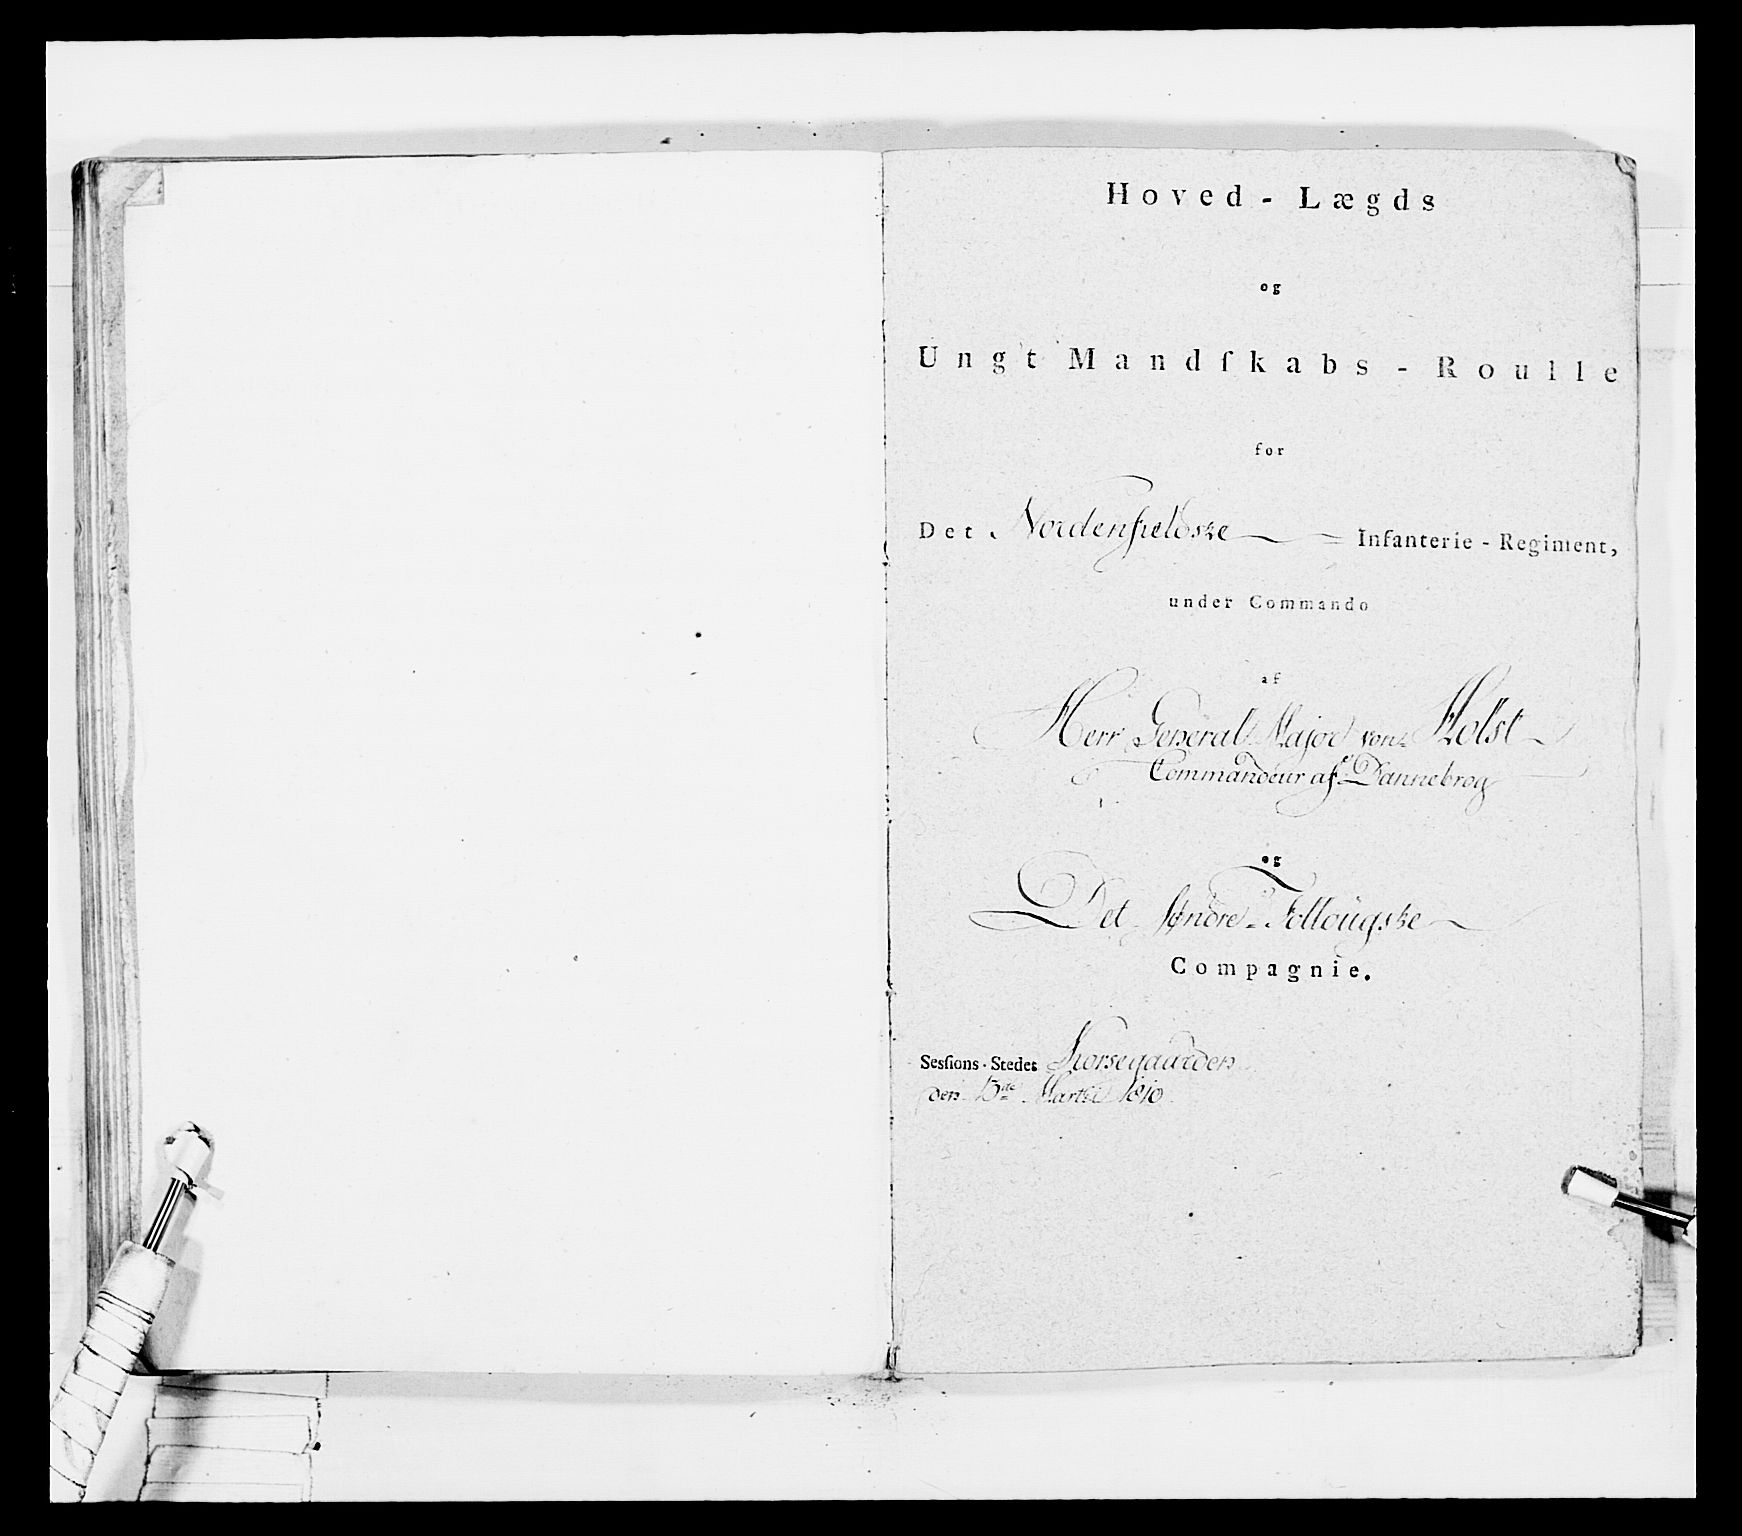 Hoved - Lægds
og
Ungt Mandſkabs - Roulle
for
Det Nordenfieldske Infanterie - Regiment,
under Commando
af
Herr General Major von Holst
Commandeur af Dannebrog
og
Det søndre Follougske
Compagnie.
Sesſions-Stedet Korsegaarden
den Martii 1810